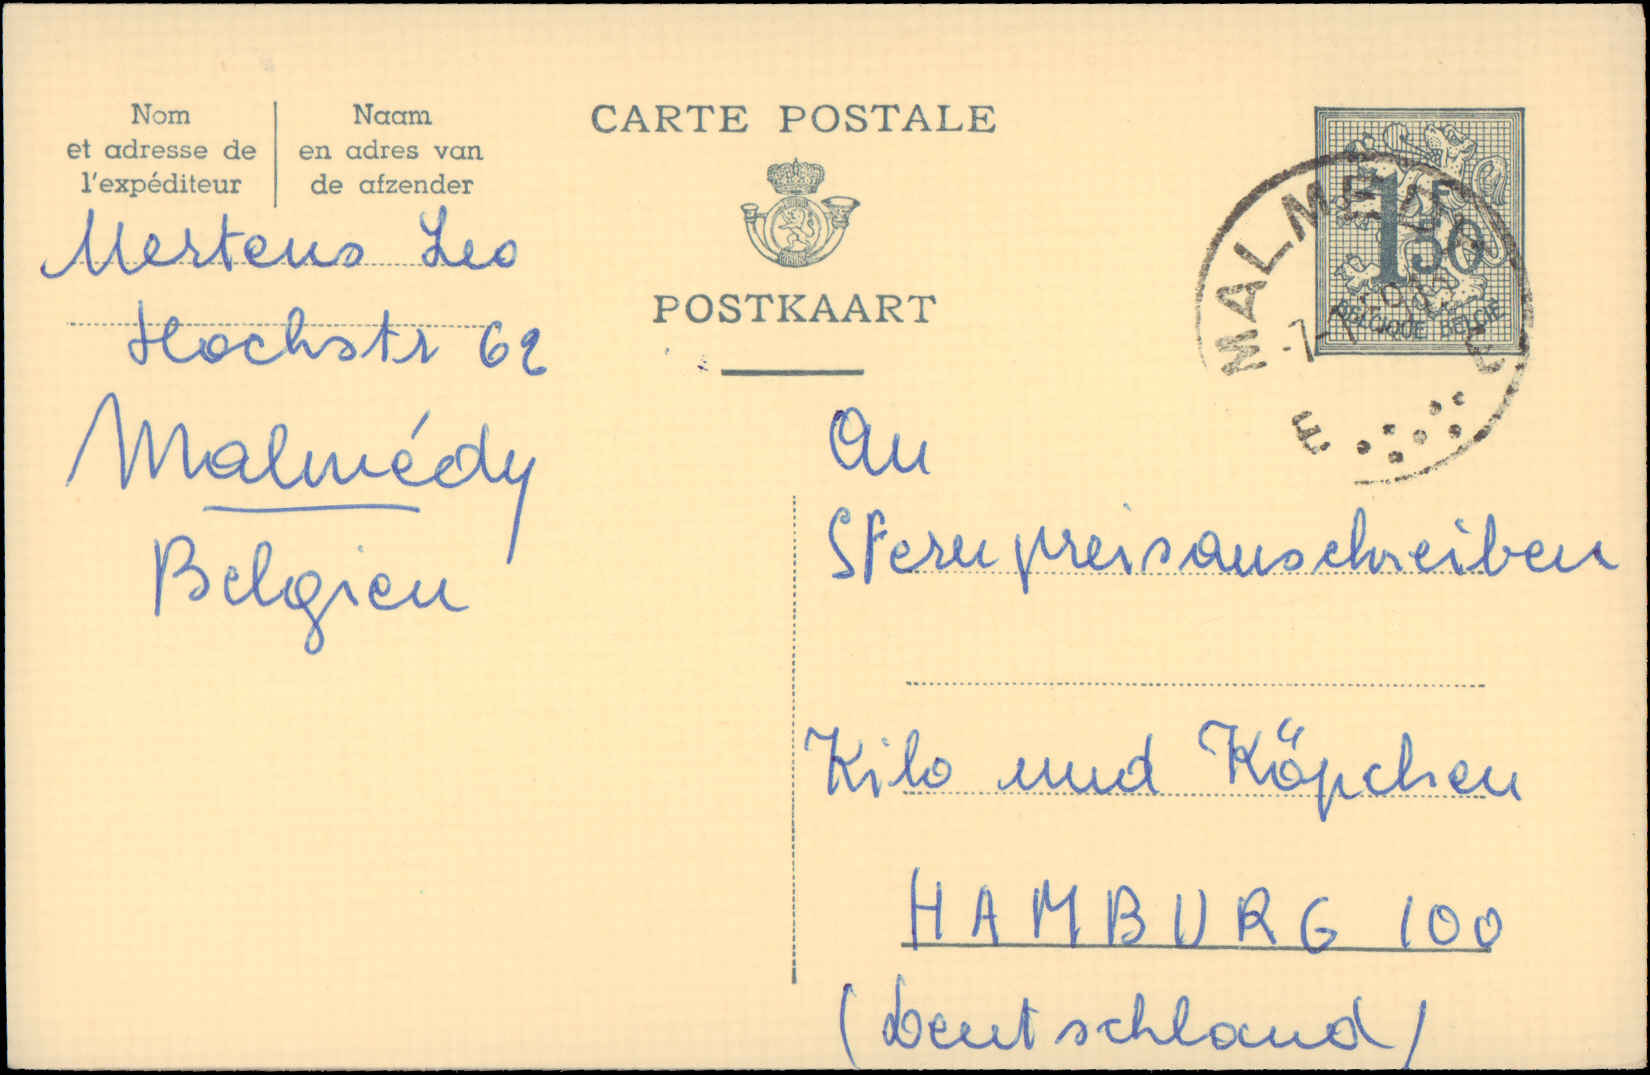 Nom
et adresse de
l'expéditeur
Naam
en adres van
de afzender
CARTE POSTALE
POSTKAART
1 50
BELGIQUE BELGIË
MALMEDY
E
Mertens Leo
Hochstr 62
Malmédy
Belgien
An
Sternpreisauschreiben
Kilo und Köpchen
HAMBURG 100
(Deutschland)